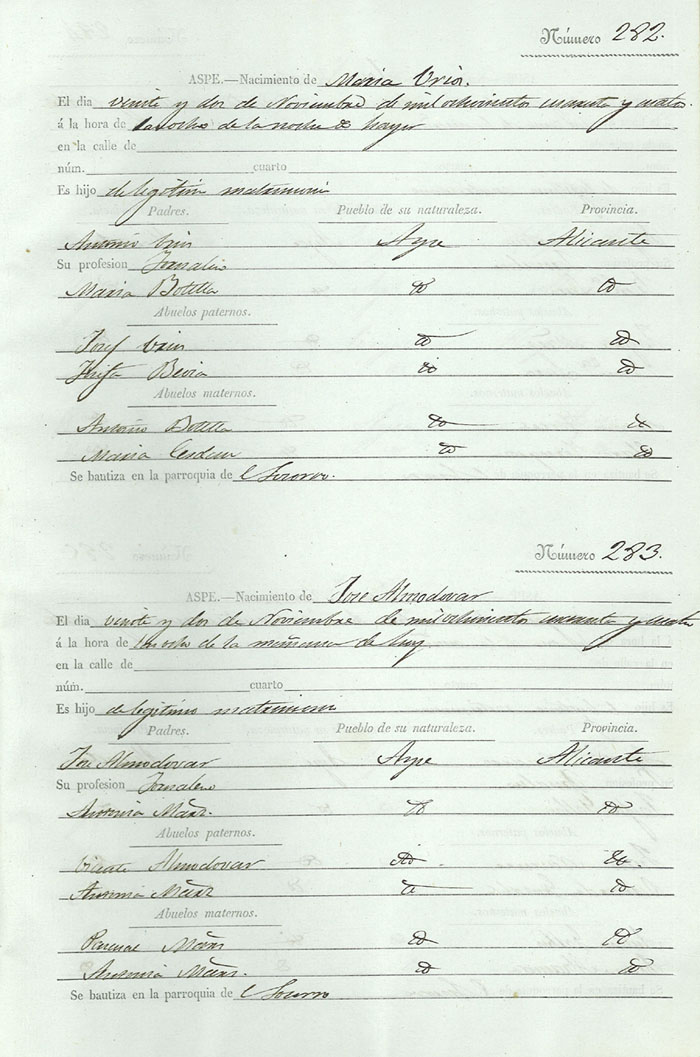 Número 282.
ASPE.—Nacimiento de Maria Urios.
El dia veinte y dos de Noviembre de mil ochocientos cuarenta y cuatro
á la hora de las ocho de la noche de hayer
en la calle de
núm. cuarto
Es hijo de legitimo matrimonio
Padres. Pueblo de su naturaleza. Provincia.
Antonio Urios Aspe Alicante
Su profesion Jornalero
Maria Botella
Abuelos paternos.
Josef Urios
Josefa Beviá
Abuelos maternos.
Antonio Botella
Maria Cerdan
Se bautiza en la parroquia de el Socorro.
Número 283.
ASPE.—Nacimiento de Jose Almodovar
El dia veinte y dos de Noviembre de mil ochocientos cuarenta y cuatro
á la hora de las ocho de la mañana de hoy
en la calle de
núm. cuarto
Es hijo de legitimo matrimonio
Padres. Pueblo de su naturaleza. Provincia.
Jose Almodovar Aspe Alicante
Su profesion Jornalero
Antonia
Abuelos paternos.
Vicente Almodovar
Antonia
Abuelos maternos.
Pascual
Antonia
Se bautiza en la parroquia de el Socorro